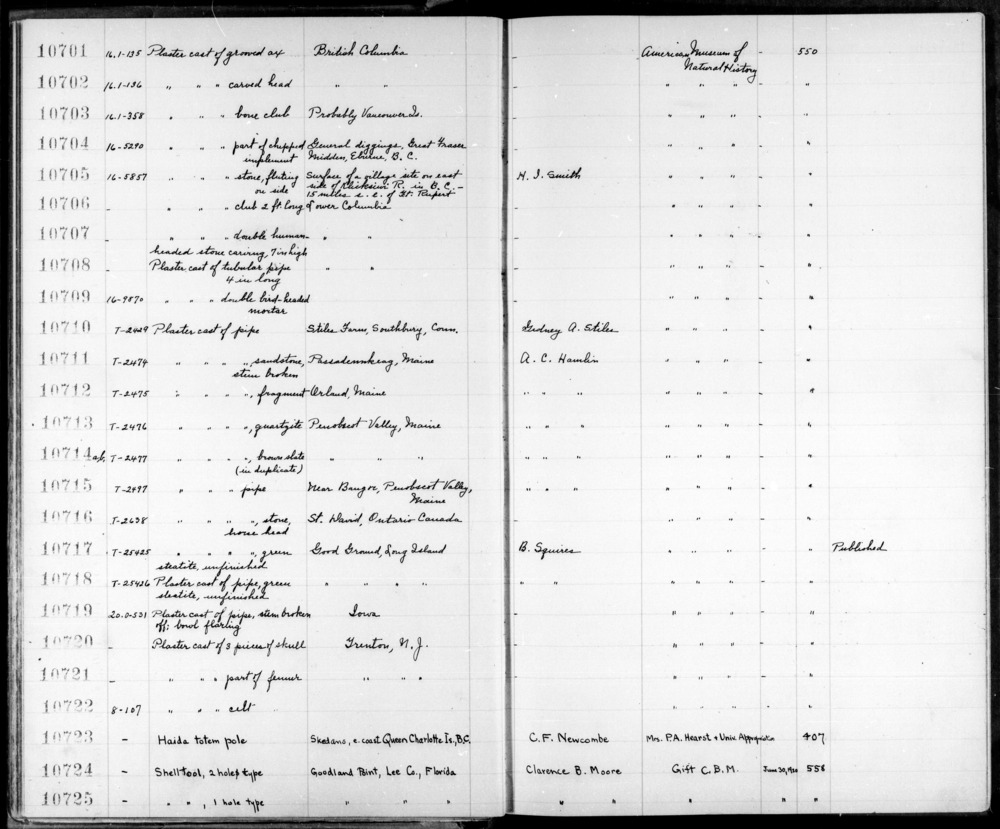 10701 16.1-135 Plaster cast of grooved ax British Columbia - American Museum of - 550
Natural History
10702 16.1-136 " " " carved head " " - " " " - "
10703 16.1-358 " " " bone club Probably Vancouver Is. - " " " - "
10704 16-5290 " " " part of chipped General diggings, Great Fraser - " " " - "
implement Midden, Eburne, B. C.
10705 16-5857 " " " stone, fluting Surface of a village site on east H. I. Smith " " " - "
on side side of R. in B. C. -
15 miles s. e. of Ft. Rupert
10706 - " " " club 2 ft. long Lower Columbia - " " " - "
10707 - " " " double human- " " - " " " - "
headed stone carving, 7 in high
10708 - Plaster cast of tubular pipe " " - " " " - "
4 in long
10709 16-9870 " " " double bird-headed " " " - "
mortar
10710 T-2429 Plaster cast of pipe Stiles Farm, Southbury, Conn. A. Stiles " " " - "
10711 T-2474 " " " ", sandstone, Passadumkeag, Maine A. C. Hamlin " " " - "
stem broken
10712 T-2475 " " " ", fragment Orland, Maine " " " " " " - "
10713 T-2476 " " " ", quartzite Penobscot Valley, Maine " " " " " " - "
10714 a,b T-2477 " " " ", brown slate " " " " " " " " " - "
(in duplicate)
10715 T-2497 " " " pipe Near Bangor, Penobscot Valley, " " " " " " - "
Maine
10716 T-2638 " " " ", stone, St. David, Ontario Canada - " " " - "
horse head
10717 T-25425 " " " ", green Good Ground, Long Island B. Squires " " " - " Published
steatite, unfinished
10718 T-25426 Plaster cast of pipe, green " " " " " " " " " - "
steatite, unfinished
10719 20.0-531 Plaster cast of pipe, stem broken Iowa - " " " - "
off; bowl flaring
10720 - Plaster cast of 3 pieces of skull Trenton, N. J. - " " " - "
10721 - " " " part of femur " " " - " " " - "
10722 8-107 " " " celt - " " " - "
10723 - Haida totem pole Skedans, e. coast Queen Charlotte Is., B.C. C. F. Newcombe Mrs. P.A. Hearst + Univ. Appropriation 407
10724 - Shell tool, 2 hole type Goodland Point, Lee Co., Florida Clarence B. Moore Gift C.B.M. June 30, 1920 558
10725 - " ", 1 hole type " " " " " " " "